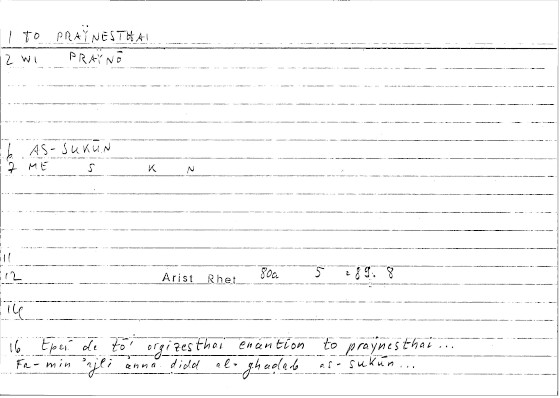 1 TO PRAÏNESTHAI
2 WI PRAÏNŌ
6 AS-SUKŪN
7 ME S K N
11
12 Arist Rhet 80a 5 = 89. 8
14
16 Epei de tōi orgizesthai enantion to praÿnesthai...
Fa-min 'ajli 'anna didd al-ghadab as-sukūn...